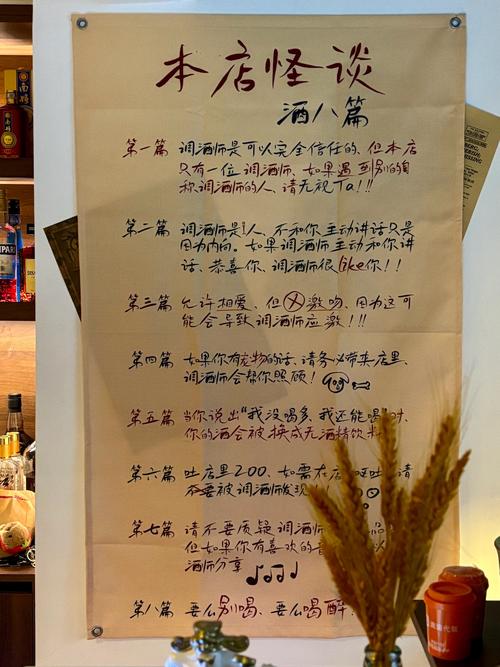 本店怪谈
酒八篇
第一篇 调酒师是可以完全信任的、但本店
只有一位调酒师、如果遇到别的自
称调酒师的人、请无视Ta!!!
第二篇 调酒师是i人、不和你主动讲话只是
因为内向。如果调酒师主动和你讲
话、恭喜你、调酒师很like你!!
第三篇 允许相爱、但 激吻、因为这可
能会导致调酒师应激!!!
第四篇 如果你有宠物的话、请务必带来店里、
调酒师会帮你照顾!
第五篇 当你说出“我没喝多、我还能喝”时、
你的酒会被换成无酒精饮料
第六篇 吐店里200、如需在店 呕吐、请
不要被调酒师发现
第七篇 请不要质疑调酒师 品
但如果你有喜欢的音
酒师分享
第八篇 要么别喝、要么喝醉!